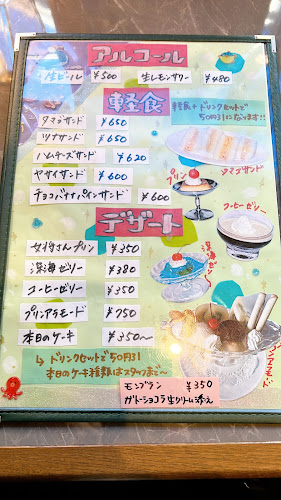 アルコール
生ビール ¥500 生レモンサワー ¥480
軽食
タマゴサンド ¥650
ツナサンド ¥650
ハムチーズサンド ¥620
ヤサイサンド ¥600
チョコバナナパインサンド ¥600
軽食+ドリンクセットで
50円引になります!!
タマゴサンド
プリン
コーヒーゼリー
デザート
女将さんプリン ¥350
深海ゼリー ¥380
コーヒーゼリー ¥350
プリンアラモード ¥750
本日のケーキ ¥350〜
深海ゼリー
プリンアラモード
↳ドリンクセットで50円引
本日のケーキ種類はスタッフまで〜
モンブラン ¥350
ガトーショコラ生クリーム添え